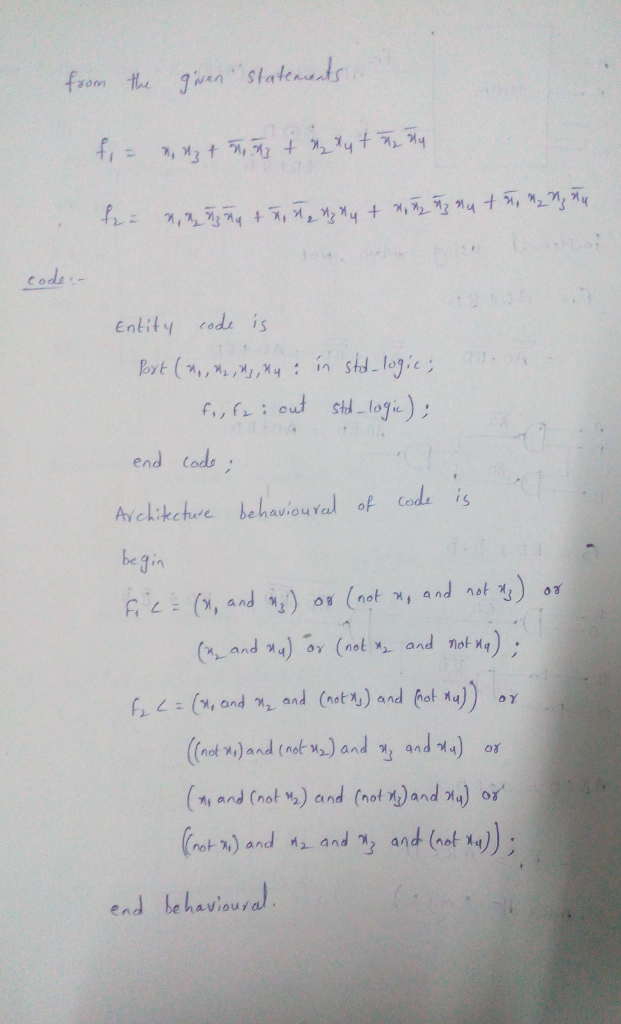 from the given statements
f₁ = x₁ x₃ + x̅₁ x̅₃ + x₂ x₄ + x̅₂ x̅₄
f₂ = x₁ x₂ x̅₃ x̅₄ + x̅₁ x̅₂ x₃ x₄ + x₁ x̅₂ x̅₃ x₄ + x̅₁ x₂ x₃ x̅₄
code:-
Entity code is
Port (x₁, x₂, x₃, x₄ : in std_logic;
f₁, f₂ : out std_logic);
end code;
Architecture behavioural of code is
begin
f₁ <= (x₁ and x₃) or (not x₁ and not x₃) or
(x₂ and x₄) or (not x₂ and not x₄);
f₂ <= (x₁ and x₂ and (not x₃) and (not x₄)) or
((not x₁) and (not x₂) and x₃ and x₄) or
(x₁ and (not x₂) and (not x₃) and x₄) or
((not x₁) and x₂ and x₃ and (not x₄));
end behavioural.